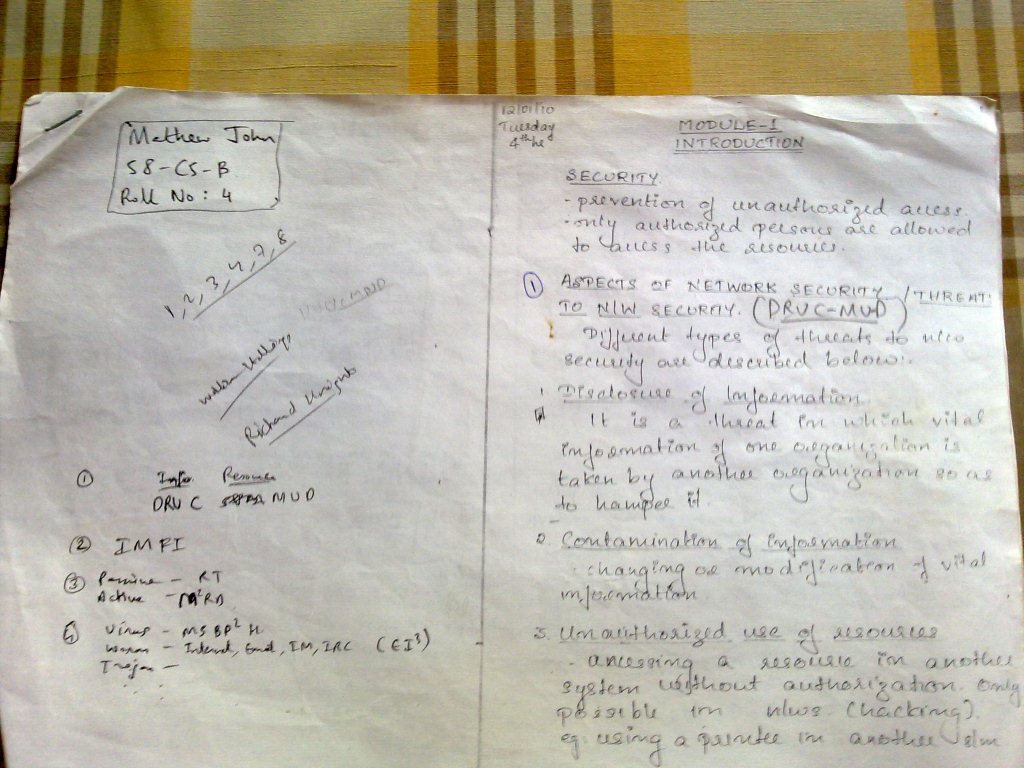 Mathew John
S8-CS-B
Roll No: 4
1, 2, 3, 4, 7, 8
William Stallings
Richard
① Info. Resource
DRUC MUD
② IMFI
③ Passive - RT
Active - M²RD
④ Virus - MSBP²H
Worm - Internet, Email, IM, IRC (EI³)
Trojan -
12/01/10
Tuesday
4th hr
MODULE-1
INTRODUCTION
SECURITY.
- prevention of unauthorized access.
- only authorized persons are allowed
to access the resources.
① ASPECTS OF NETWORK SECURITY / THREAT
TO N/W SECURITY. (DRUC-MUD)
Different types of threats to n/w
security are described below:-
1. Disclosure of Information
It is a threat in which vital
information of one organization is
taken by another organization so as
to hamper it.
2. Contamination of information
- changing or modification of vital
information
3. Unauthorized use of resources
- accessing a resource in another
system without authorization. Only
possible in n/ws (hacking).
eg: using a printer in another s/m